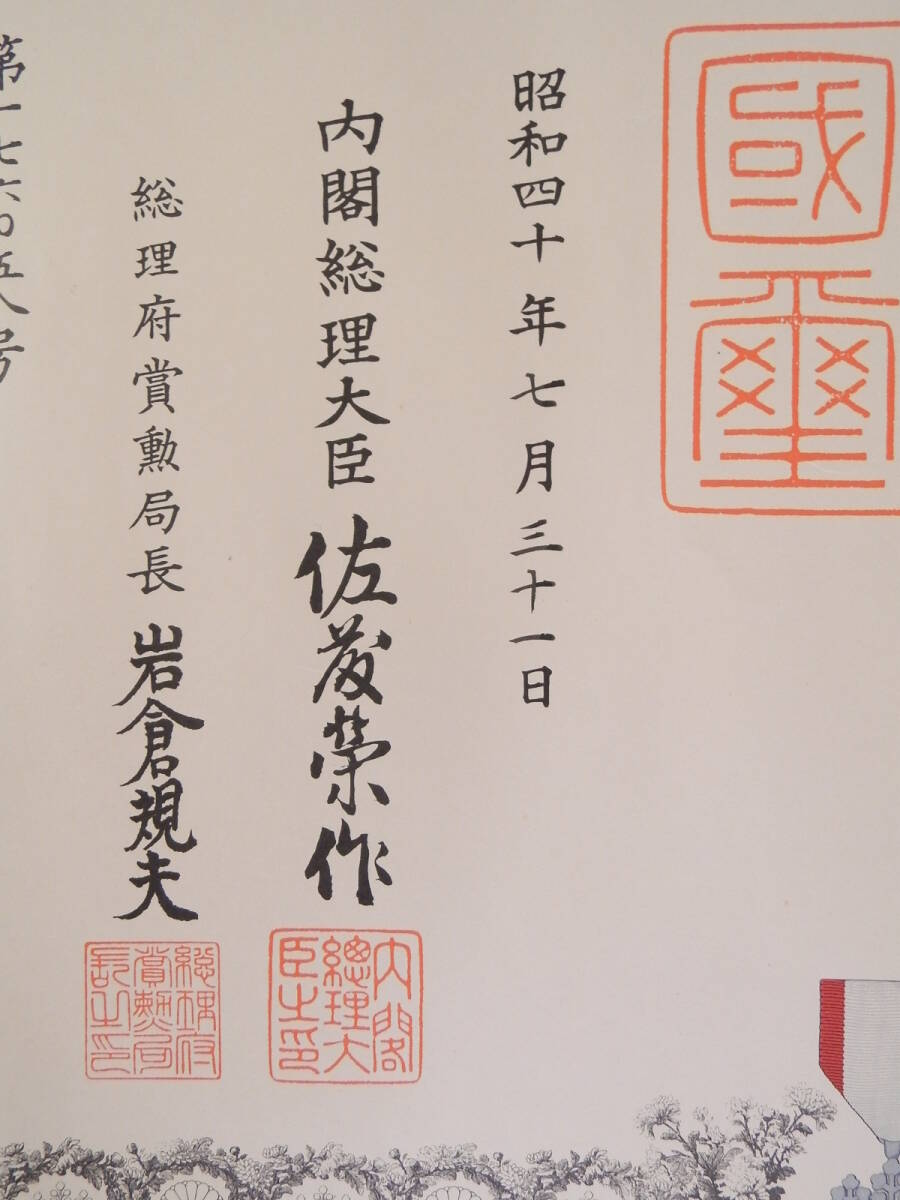 國璽
昭和四十年七月三十一日
内閣総理大臣 佐藤榮作
内閣總理大臣之印
総理府賞勲局長 岩倉規夫
総理府賞勲局長之印
第一七六〇五八号